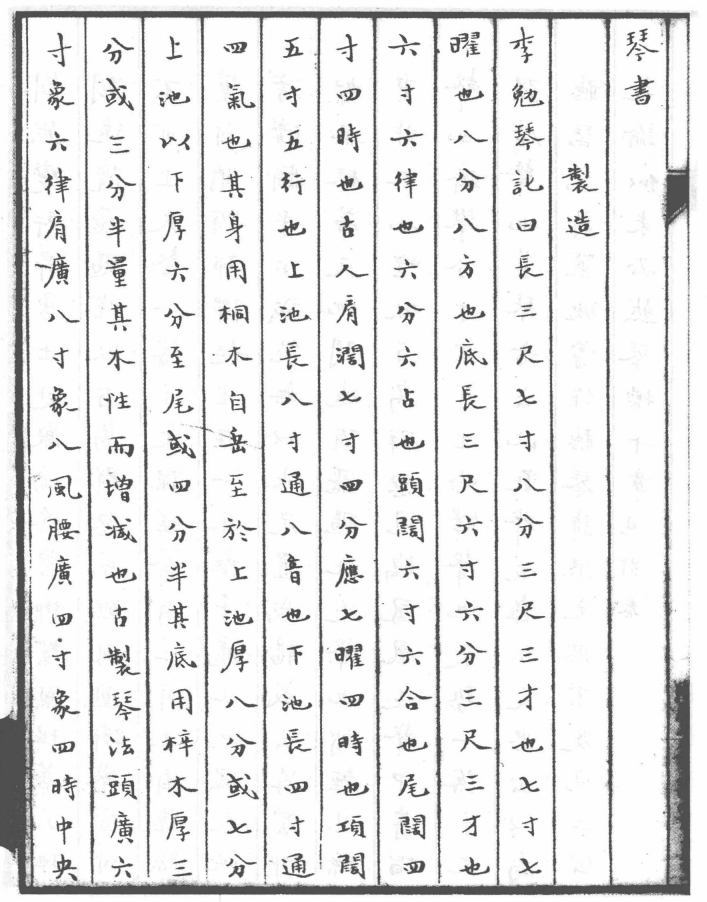 琴書
製造
李勉琴記曰長三尺七寸八分三尺三才也七寸七
曜也八分八方也底長三尺六寸六分三尺三才也
六寸六律也六分六占也頭闊六寸六合也尾闊四
寸四時也古人肩濶七寸四分應七曜四時也項闊
五寸五行也上池長八寸通八音也下池長四寸通
四氣也其身用桐木自岳至於上池厚八分或七分
上池以下厚六分至尾或四分半其底用梓木厚三
分或三分半量其木性而增减也古製琴法頭廣六
寸象六律肩廣八寸象八風腰廣四寸象四時中央